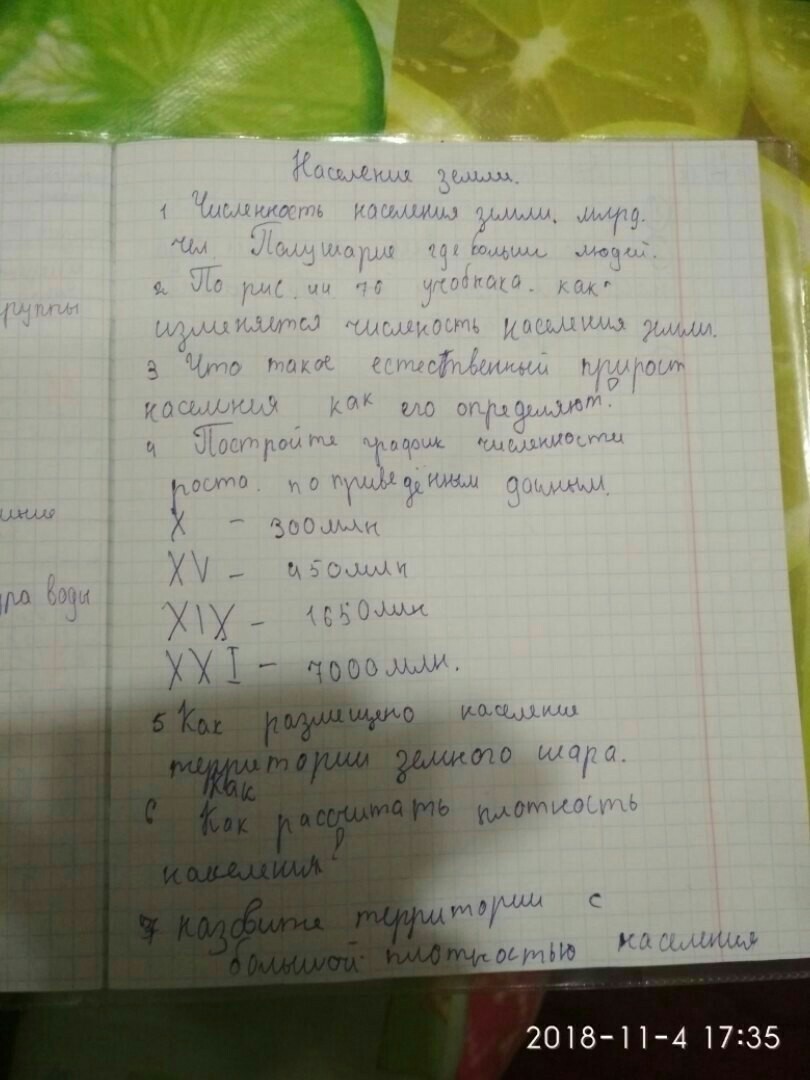 Население земли.
1 Численность населения земли. млрд.
чел Полушарие где больши людей.
2 По рис. 70 учебника. как
изменяется числекость населения земли.
3 Что такое естественный прирост
населения как его определяют?
4 Постройте график численности
роста. по приведённым данным.
X - 300 млн
XV - 450 млн
XIX - 1650 млн
XXI - 7000 млн.
5 Как размещено население
территории земного шара.
как
6 Как рассчитать плотность
населения?
7 назовите территории с
большой плотностью населения
группы
ра воды
2018-11-4 17:35